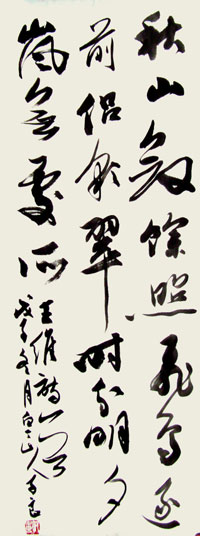 秋山斂餘照飛鳥逐
前侶彩翠時分明夕
嵐無處所
王維詩一首
戊子冬月白山人